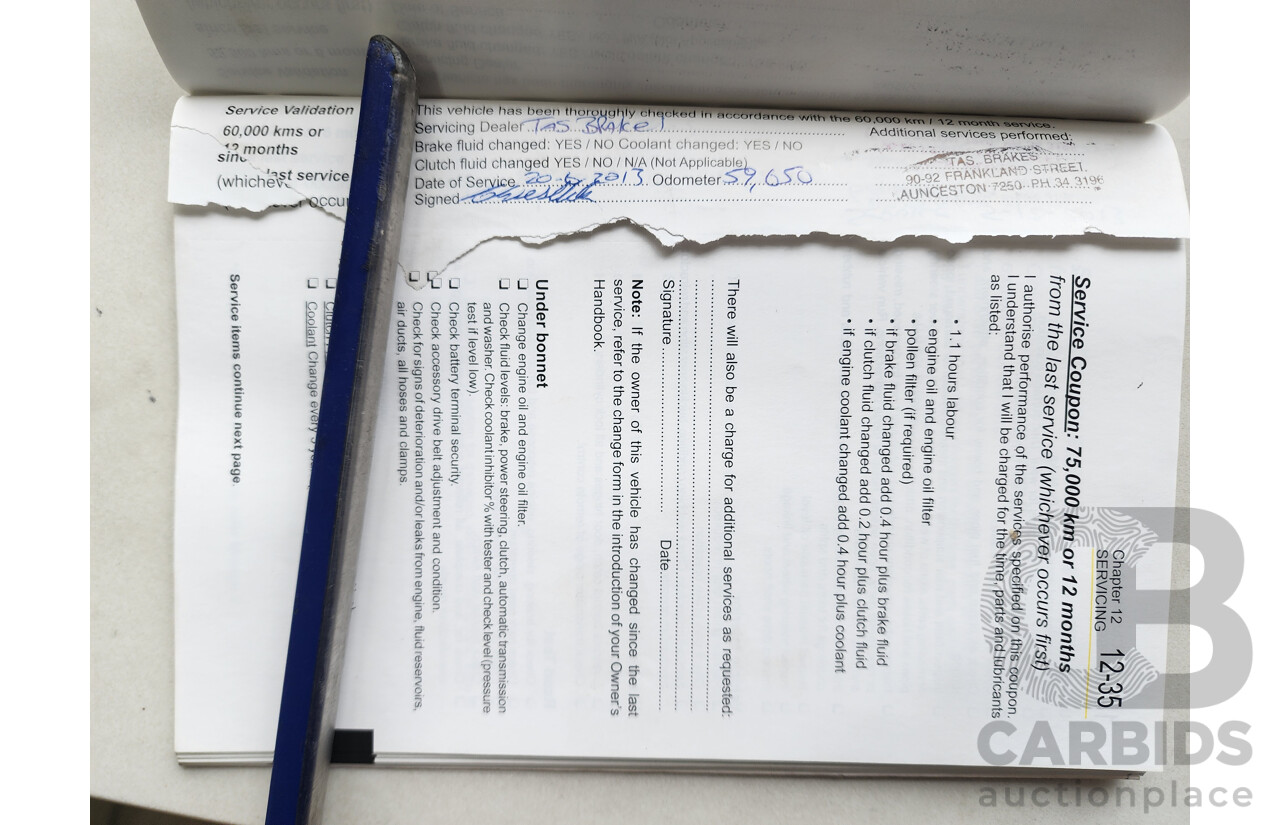 Service Validation
60,000 kms or
12 months
since
last service
(whichever occur
This vehicle has been thoroughly checked in accordance with the 60,000 km / 12 month service.
Servicing Dealer Tas Brake
Brake fluid changed: YES / NO Coolant changed: YES / NO
Clutch fluid changed YES / NO / N/A (Not Applicable)
Date of Service 20-6-2013 Odometer 59,650
Signed
Additional services performed:
TAS. BRAKES
90-92 FRANKLAND STREET,
LAUNCESTON 7250 PH.34.3196
Chapter 12
SERVICING 12-35
Service Coupon: 75,000 km or 12 months
from the last service (whichever occurs first)
I authorise performance of the services specified on this coupon.
I understand that I will be charged for the time, parts and lubricants
as listed:
• 1.1 hours labour
• engine oil and engine oil filter
• pollen filter (if required)
• if brake fluid changed add 0.4 hour plus brake fluid
• if clutch fluid changed add 0.2 hour plus clutch fluid
• if engine coolant changed add 0.4 hour plus coolant
There will also be a charge for additional services as requested:
Signature Date
Note: If the owner of this vehicle has changed since the last
service, refer to the change form in the introduction of your Owner's
Handbook.
Under bonnet
❑ Change engine oil and engine oil filter.
❑ Check fluid levels: brake, power steering, clutch, automatic transmission
and washer. Check coolant inhibitor % with tester and check level (pressure
test if level low).
❑ Check battery terminal security.
❑ Check accessory drive belt adjustment and condition.
❑ Check for signs of deterioration and/or leaks from engine, fluid reservoirs,
air ducts, all hoses and clamps.
❑ Clutch
❑ Coolant Change every
Service items continue next page.
CARBIDS
auctionplace